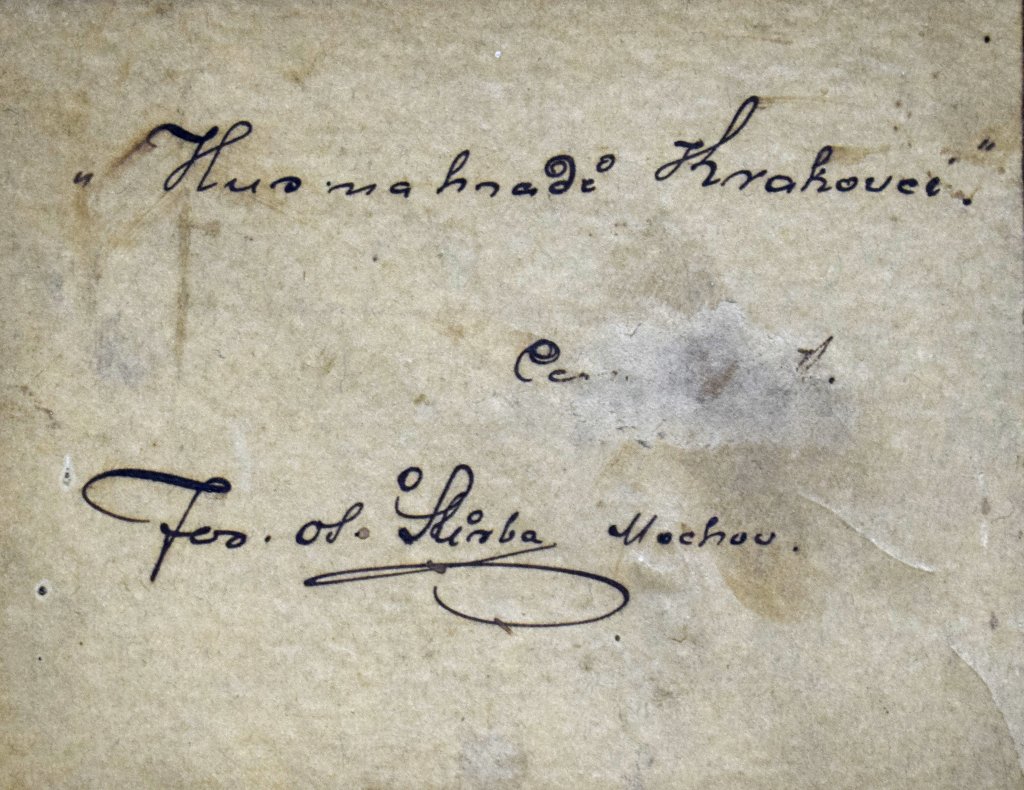 "Hus na hradě Krakovci."
Jos. ol. Škírba Mochov.